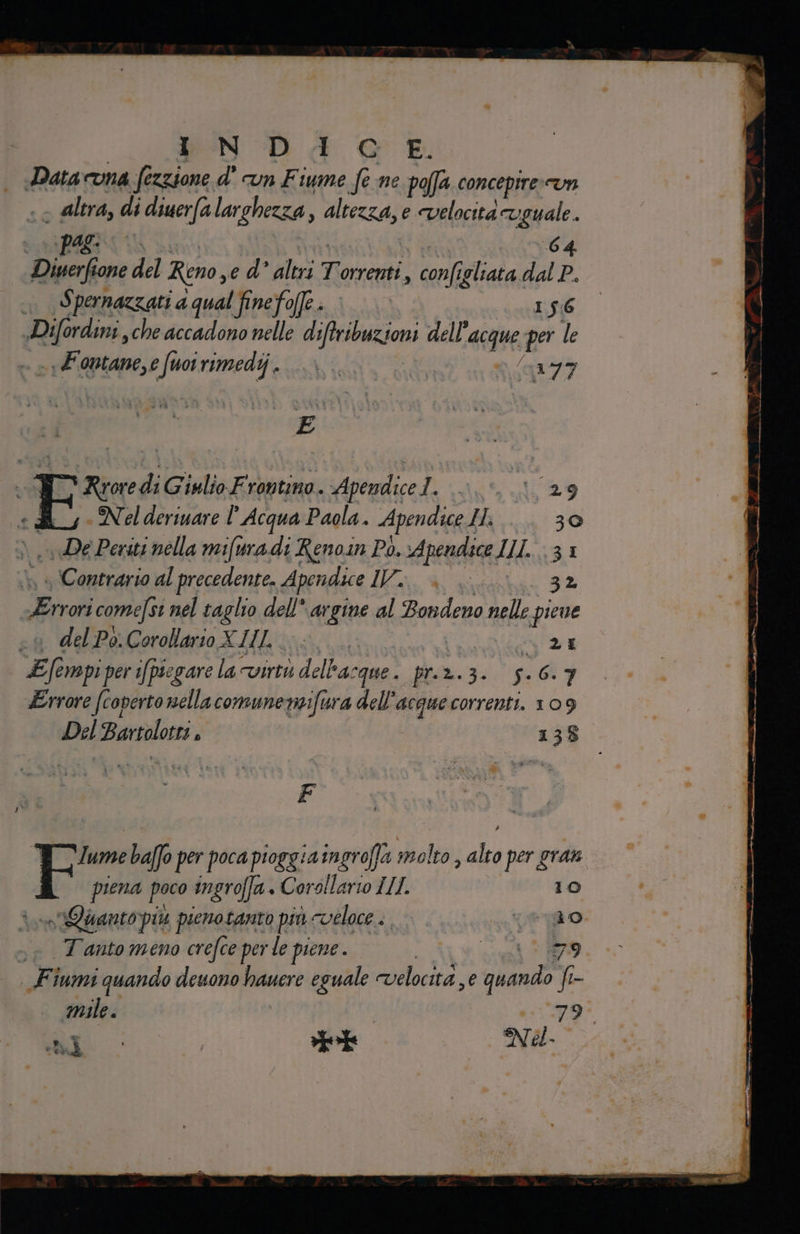 INDICE.
Data vna ſezzione d' vn Fiume ſe ne poſſa concepire vn
altra, di diuerſa larghezza, altezza, e velocità vguale.
pag. 64
Diuerſione del Reno, e d' altri Torrenti, conſigliata dal P.
Spernazzati à qual fine foſſe. 156
Diſordini, che accadono nelle diſtribuzioni dell'acque per le
Fontane, e ſuoi rimedij. 177
E
ERrore di Giulio Frontino. Apendice I. 29
Nel deriuare l' Acqua Paola. Apendice II. 30
De Periti nella miſura di Reno in Pò. Apendice III. 31
Contrario al precedente. Apendice IV. 32
Errori comeſsi nel taglio dell' argine al Bondeno nelle pieue
del Pò. Corollario XIII. 21
Eſempi per iſpiegare la virtù dell'acque. pr. 2. 3. 5. 6. 7
Errore ſcoperto nella comune miſura dell'acque correnti. 109
Del Bartolotti, 138
F
FIume baſſo per poca pioggia ingroſſa molto, alto per gran
piena poco ingroſſa. Corollario III. 10
Quanto più pieno tanto più veloce. 10
Tanto meno creſce per le piene. 79
Fiumi quando deuono hauere eguale velocità, e quando ſi-
mile. 79
** Nel-